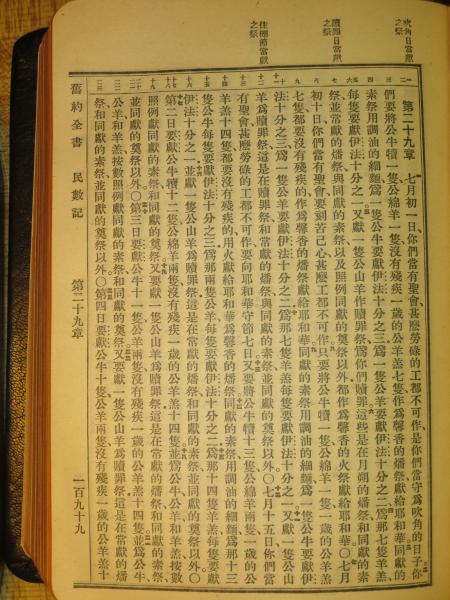 吹角日當獻之祭
贖罪日當獻之祭
住棚節當獻之祭
第二十九章 七月初一日、你們當有聖會、甚麼勞碌的工都不可作、是你們當守爲吹角的日子、你
們要將公牛犢一隻、公綿羊一隻、沒有殘疾一歲的公羊羔七隻、作爲馨香的燔祭獻給耶和華、同獻的
素祭用調油的細麵、爲一隻公牛要獻伊法十分之三、爲一隻公羊要獻伊法十分之二、爲那七隻羊羔、
每隻要獻伊法十分之一、又獻一隻公山羊作贖罪祭、爲你們贖罪、這些是在月朔的燔祭和同獻的素
祭、並常獻的燔祭與同獻的素祭、以及照例同獻的奠祭以外、都作爲馨香的火祭獻給耶和華○七月
初十日、你們當有聖會、要刻苦己心、甚麼工都不可作、只要將公牛犢一隻、公綿羊一隻、一歲的公羊羔
七隻、都要沒有殘疾的、作爲馨香的燔祭獻給耶和華、同獻的素祭用調油的細麵、爲一隻公牛要獻伊
法十分之三、爲一隻公羊要獻伊法十分之二、爲那七隻羊羔每隻要獻伊法十分之一、又獻一隻公山
羊爲贖罪祭、這是在贖罪祭與常獻的燔祭、與同獻的素祭並同獻的奠祭以外○七月十五日、你們當
有聖會、甚麼勞碌的工都不可作、要向耶和華守節七日、又要將公牛犢十三隻、公綿羊兩隻、一歲的公
羊羔十四隻、都要沒有殘疾的、用火獻給耶和華爲馨香的燔祭、同獻的素祭用調油的細麵、爲那十三
隻公牛每隻要獻伊法十分之三、爲那兩隻公羊每隻要獻伊法十分之二、爲那十四隻羊羔每隻要獻
伊法十分之一、並獻一隻公山羊爲贖罪祭、這是在常獻的燔祭、和同獻的素祭並同獻的奠祭以外○
第二日要獻公牛犢十二隻、公綿羊兩隻、沒有殘疾一歲的公羊羔十四隻、並爲公牛公羊和羊羔、按數
照例獻同獻的素祭和同獻的奠祭、又要獻一隻公山羊爲贖罪祭、這是在常獻的燔祭、和同獻的素祭
並同獻的奠祭以外○第三日要獻公牛十一隻、公羊兩隻、沒有殘疾一歲的公羊羔十四隻、並爲公牛
公羊和羊羔、按數照例獻同獻的素祭和同獻的奠祭、又要獻一隻公山羊爲贖罪祭、這是在常獻的燔
祭、和同獻的素祭並同獻的奠祭以外○第四日要獻公牛十隻、公羊兩隻、沒有殘疾一歲的公羊羔十
舊約全書 民數記 第二十九章 一百九十九